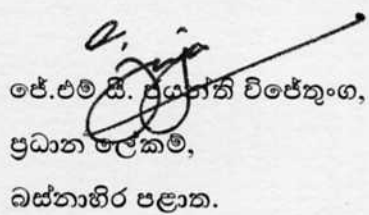 ජේ.එම් සී. ජයන්ති විජේතුංග,
ප්‍රධාන ලේකම්,
බස්නාහිර පළාත.